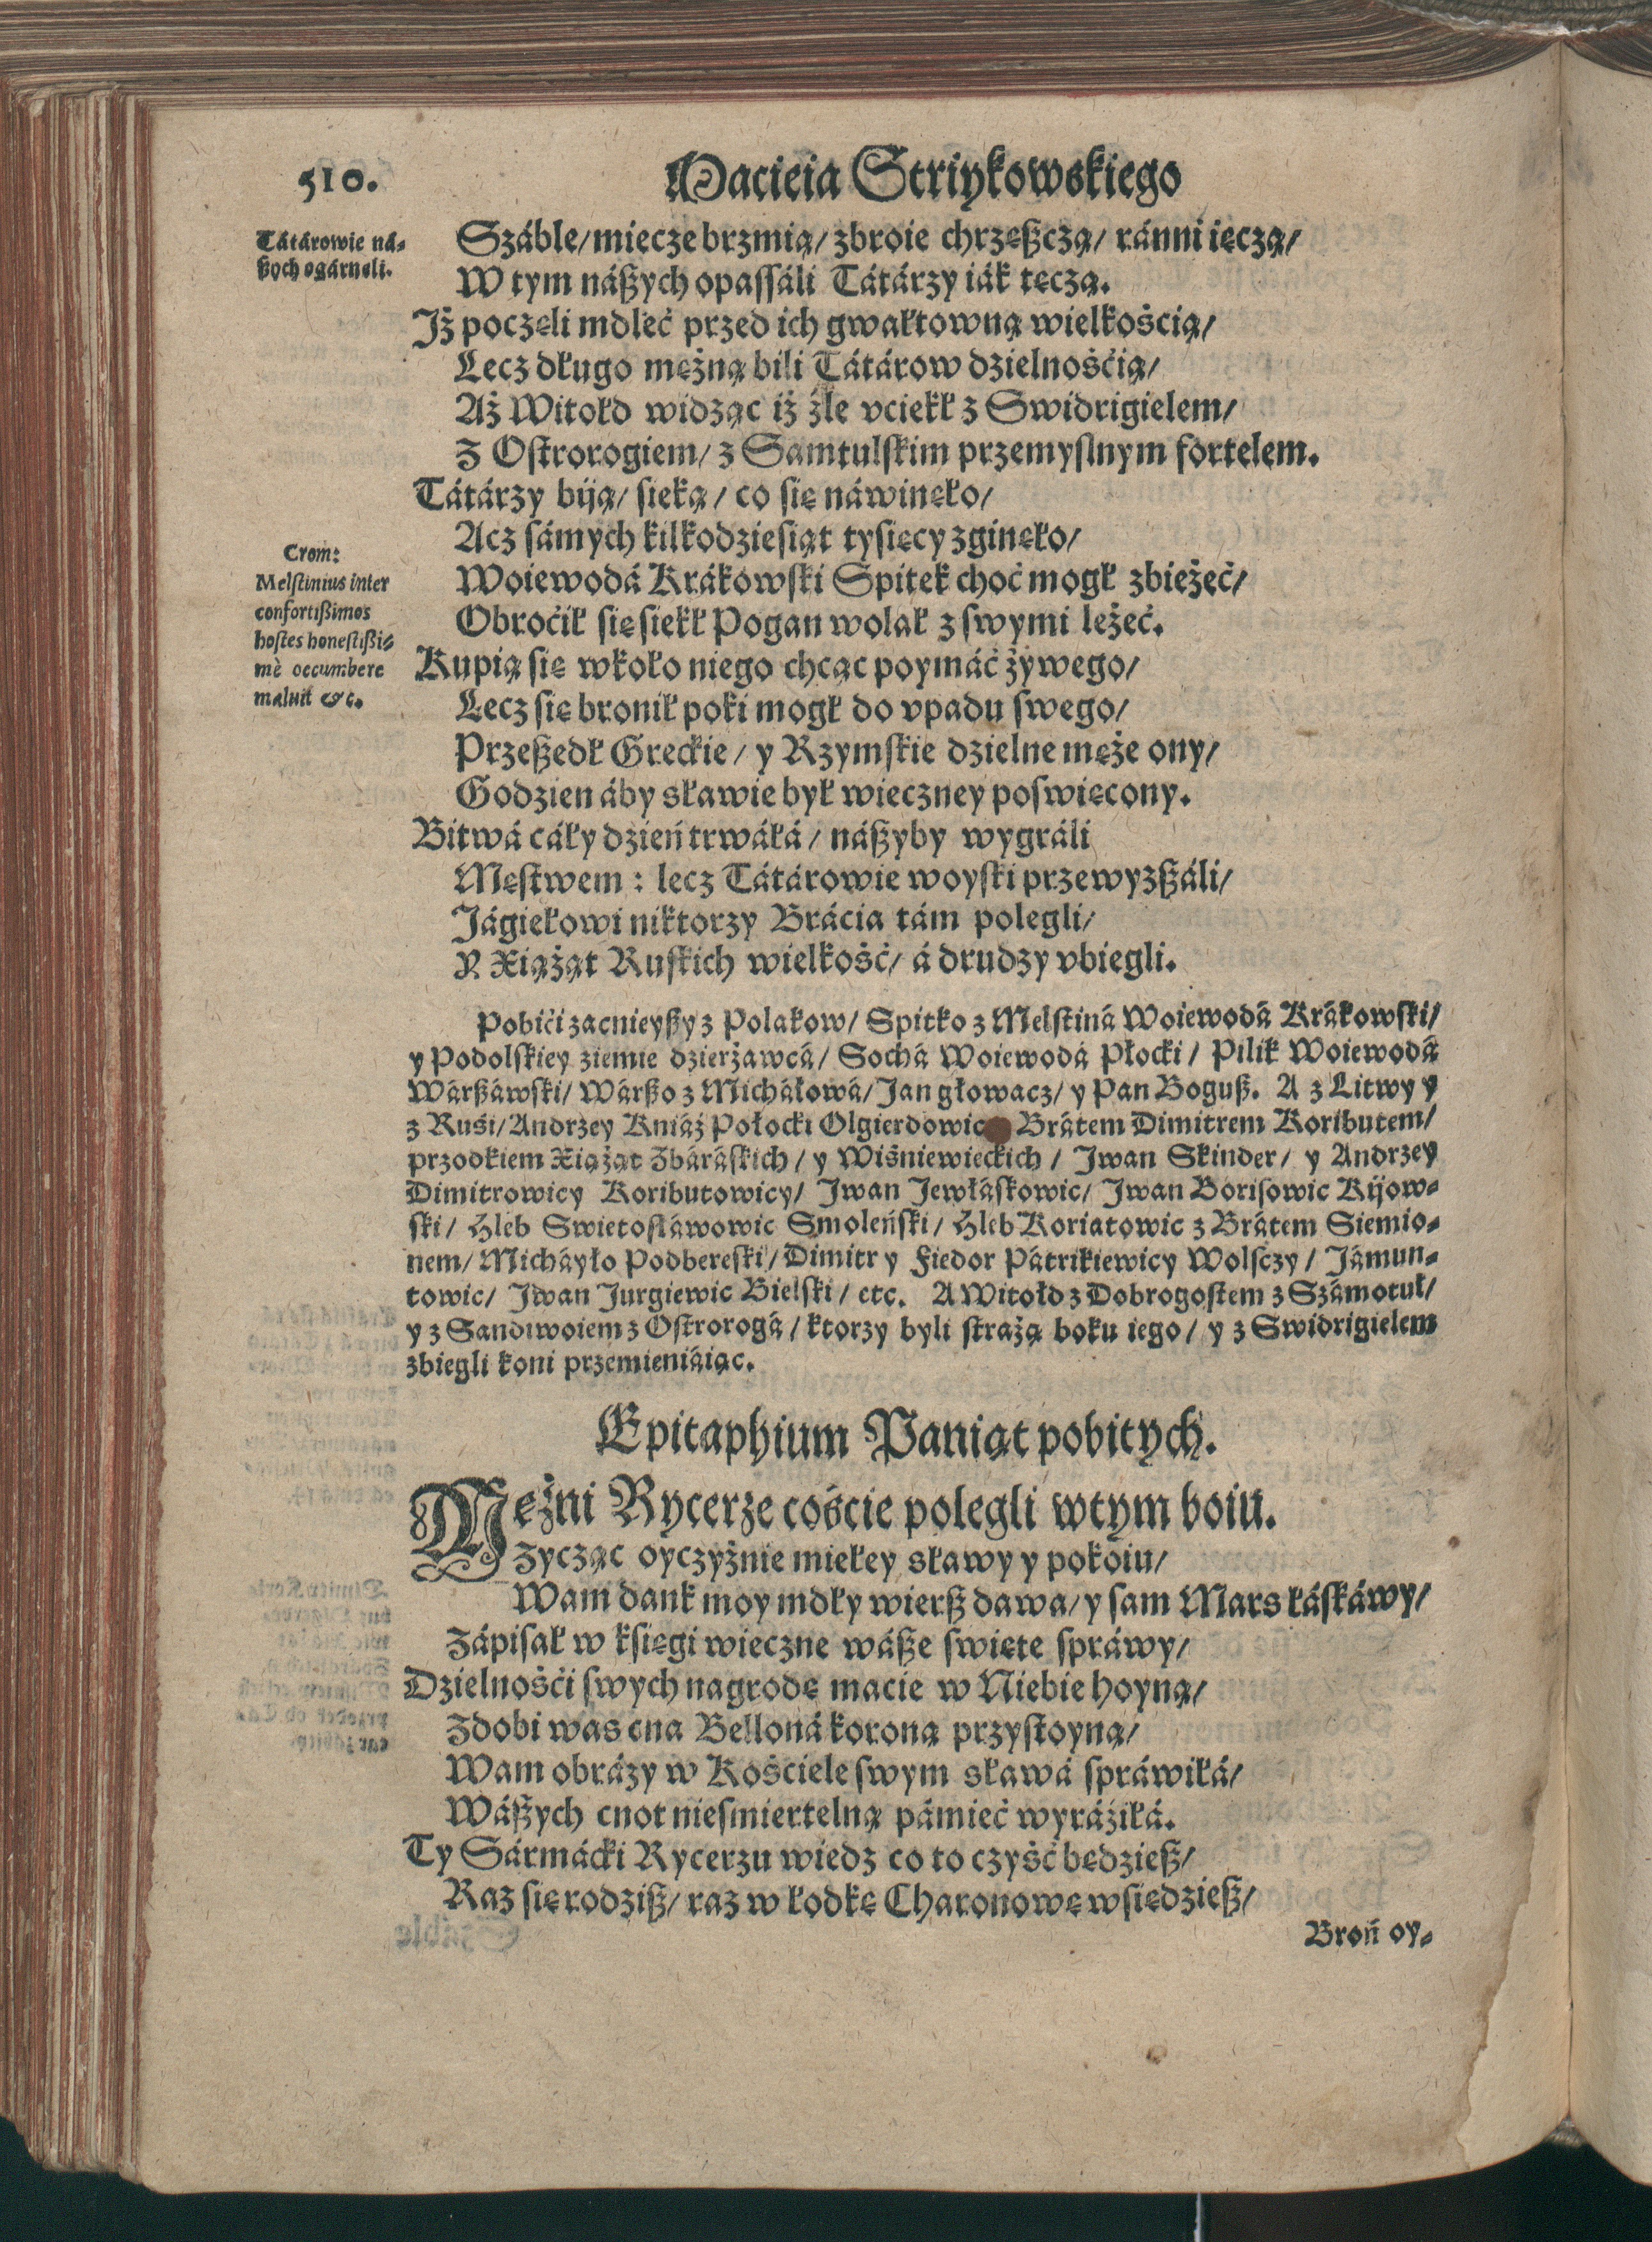 510.
Macieia Striykowskiego
Tátárowie ná-
ßych ogárnęli.
Száble/ miecze brzmią/ zbroie chrzęßczą/ ránni ięczą/
W tym náßych opassáli Tátárzy iák tęczą.
Jż poczęli mdleć przed ich gwałtowną wielkością/
Lecz długo mężną bili Tátárow dzielnośćią/
Aż Witołd widząc iż źle vciekł z Swidrigielem/
Z Ostrorogiem/ z Samtulskim przemyslnym fortelem.
Tátárzy biją/ sieką/ co się náwinęło/
Acz sámych kilkodziesiąt tysięcy zginęło/
Crom:
Melstinius inter
confortißimos
hostes honestißi-
mè occumbere
maluit &c.
Woiewodá Krákowski Spitek choć mogł zbieżeć/
Obroćił się siekł Pogan wolał z swymi leżeć.
Kupią się wkoło niego chcąc poymáć żywego/
Lecz się bronił poki mogł do vpadu swego/
Przeßedł Greckie/ y Rzymskie dzielne męże ony/
Godzien áby sławie był wieczney poswięcony.
Bitwá cáły dzień trwáłá/ náßyby wygráli
Męstwem : lecz Tátárowie woyski przewyzßáli/
Jágiełowi niktorzy Brácia tám polegli/
Y Xiążąt Ruskich wielkość/ á drudzy vbiegli.
Pobići zacnieyßy z Polakow/ Spitko z Melstiná Woiewodá Krákowski/
y Podolskiey ziemie dzierżawcá/ Sochá Woiewodá Płocki/ Pilik Woiewodá
Wárßáwski/ Wárßo z Micháłowá/ Jan głowacz/ y Pan Boguß. A z Litwy y
z Ruśi/ Andrzey Kniáź Połocki Olgierdowic Brátem Dimitrem Koributem/
przodkiem Xiążąt Zbáráskich/ y Wiśniewieckich/ Jwan Skinder/ y Andrzey
Dimitrowicy Koributowicy/ Jwan Jewłáskowic/ Jwan Borisowic Kijow-
ski/ Hleb Swietosláwowic Smoleński/ Hleb Koriatowic z Brátem Siemio-
nem/ Micháyło Podbereski/ Dimitr y Fiedor Pátrikiewicy Wolsczy/ Jámun-
towic/ Jwan Jurgiewic Bielski/ etc. A Witołd z Dobrogostem z Számotuł/
y z Sandiwoiem z Ostrorogá/ ktorzy byli strażą boku iego/ y z Swidrigielem
zbiegli koni przemieniáiąc.
Epitaphium Paniąt pobitych.
Mężni Rycerze cośćie polegli w tym boiu.
Zycząc oyczyźnie miłey sławy y pokoiu/
Wam dank moy mdły wierß dawa/ y sam Mars łáskáwy/
Zápisał w księgi wieczne wáße swięte spráwy/
Dzielnośći swych nagrodę macie w Niebie hoyną/
Zdobi was cna Belloná koroną przystoyną/
Wam obrázy w Kościele swym sławá spráwiłá/
Wáßych cnot niesmiertelną pámieć wyráźiłá.
Ty Sármácki Rycerzu wiedz co to czyść będzieß/
Raz się rodziß/ raz w łodkę Charonowę wsiędzieß/
Broń oy-